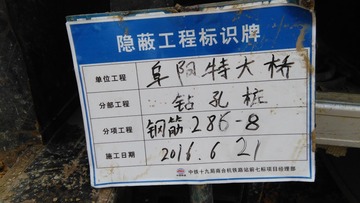 隐蔽工程标识牌
单位工程 阜阳特大桥
分部工程 钻孔桩
分项工程 钢筋286-8
施工日期 2016.6.21
中铁十九局商合杭铁路站前七标项目经理部